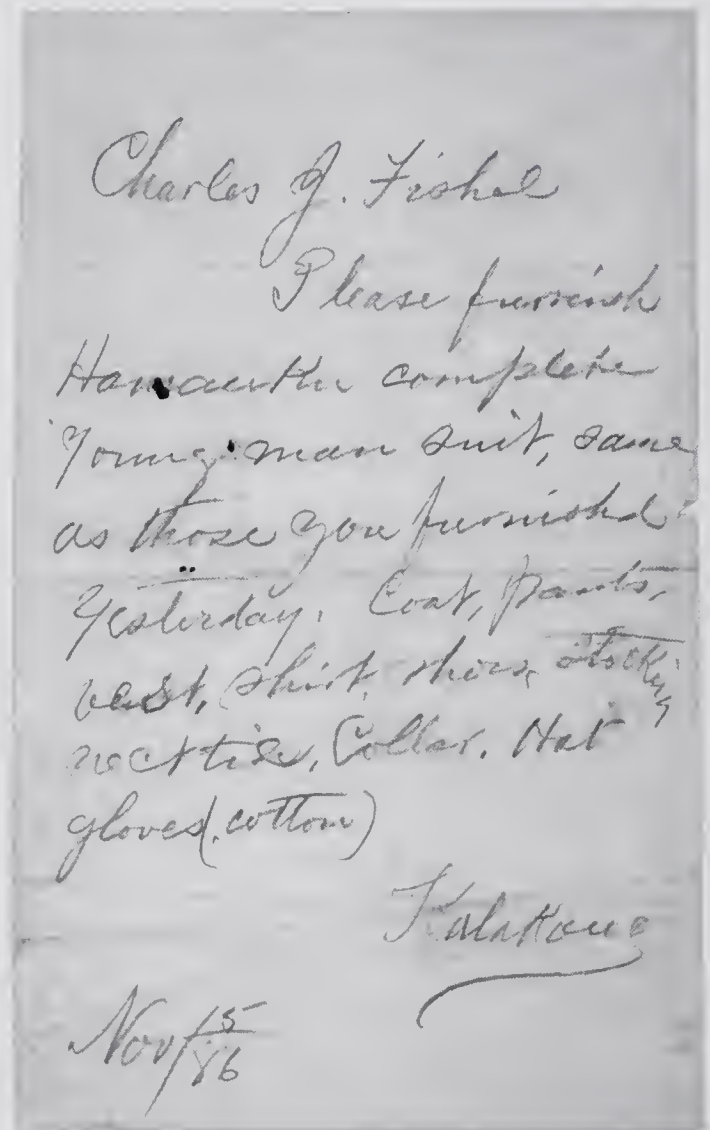 Charles J. Fishel
Please furnish
complete
Young man suit, same
as those you furnished
Yesterday. Coat, pants,
vest, shirt, shoes, stocking
necktie, Collar. Hat
gloves (cotton)
Kalakaua
Nov 15/86